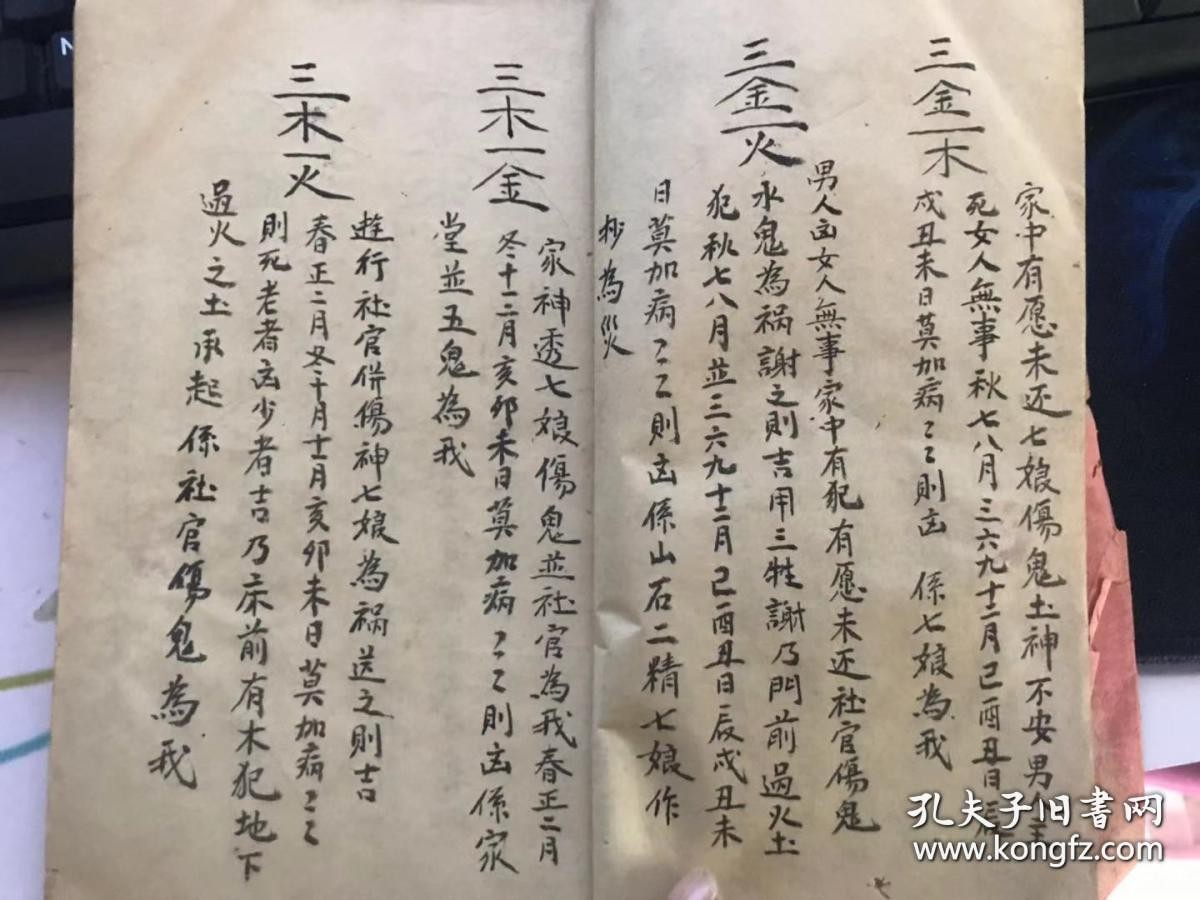 三金一木
家中有愿未还七娘傷鬼土神不安男人主
死女人無事秋七八月三六九十二月己酉丑日辰
戍丑未日莫加病〻〻則凶 係七娘為我
三金一火
男人凶女人無事家中有犯有愿未还社官傷鬼
水鬼為祸謝之則吉用三牲謝乃門前過火土
犯秋七八月並三六九十二月己酉丑日辰戍丑未
日莫加病〻〻則凶係山石二精七娘作
抄為災
三木一金
家神透七娘傷鬼並社官為我春正二月
冬十二月亥卯未日莫加病〻〻則凶係家
堂並五鬼為我
三木一火
遊行社官併傷神七娘為祸送之則吉
春正二月冬十月十二月亥卯未日莫加病〻〻
則死老者凶少者吉乃床前有木犯地下
過火之土承起係社官傷鬼為我
孔夫子旧书网
www.kongfz.com
N